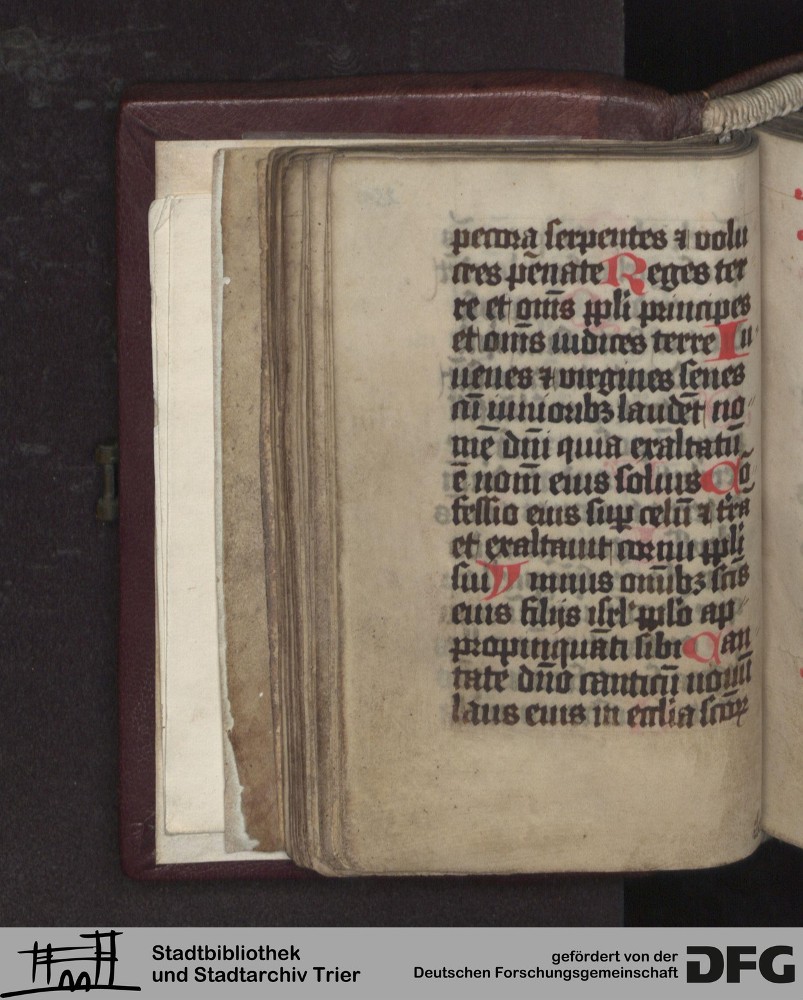 pecora serpentes ⁊ volu
cres pēnate Reges ter
re et om̄s ppli principes
et om̄s iudices terre Iu
uenes ⁊ virgines senes
cū iunioribꝫ laudēt no
mē dn̄i quia exaltatū
ē nom̄ eius solius Cō
fessio eius suꝑ celū ⁊ trā
et exaltauit cornu ppli
sui Ymnus omībꝫ scīs
eius filijs isrl' pplo ap
propinquāti sibi Can
tate dn̄o canticū nouū
laus eius in ecclia scōꝝ
Stadtbibliothek
und Stadtarchiv Trier
gefördert von der
Deutschen Forschungsgemeinschaft
DFG